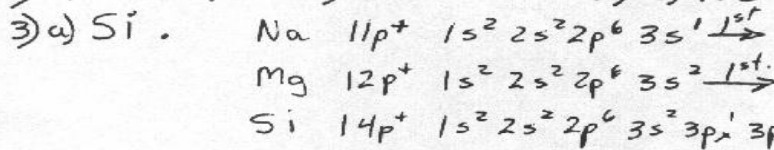 3) a) Si . Na 11p⁺ 1s² 2s² 2p⁶ 3s¹ 1st→
Mg 12p⁺ 1s² 2s² 2p⁶ 3s² 1st.→
Si 14p⁺ 1s² 2s² 2p⁶ 3s² 3pₓ¹ 3p